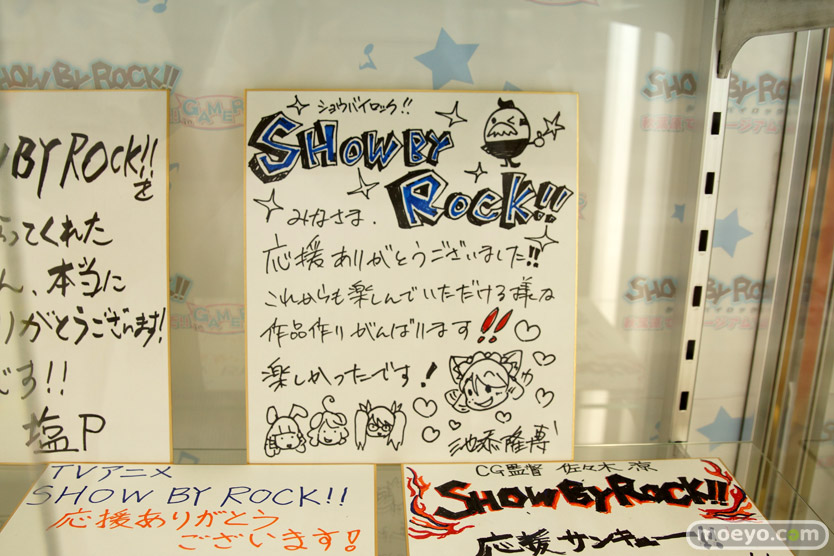 SHOW BY ROCK!!
GAMER
BY ROCK!!
を
ってくれた
ん、本当に
りがとうございます!
です!!
塩P
ショウバイロック!!
SHOW BY
ROCK!!
みなさま、
応援ありがとうございました!!
これからも楽しんでいただける様な
作品作りがんばります!!
楽しかったです!
SHOW BY ROCK!!
GAMER
SHOW BY ROCK!!
TVアニメ
SHOW BY ROCK!!
応援ありがとう
ございます!
CG監督 佐々木 涼
SHOW BY ROCK!!
応援サンキュー
moeyo.com